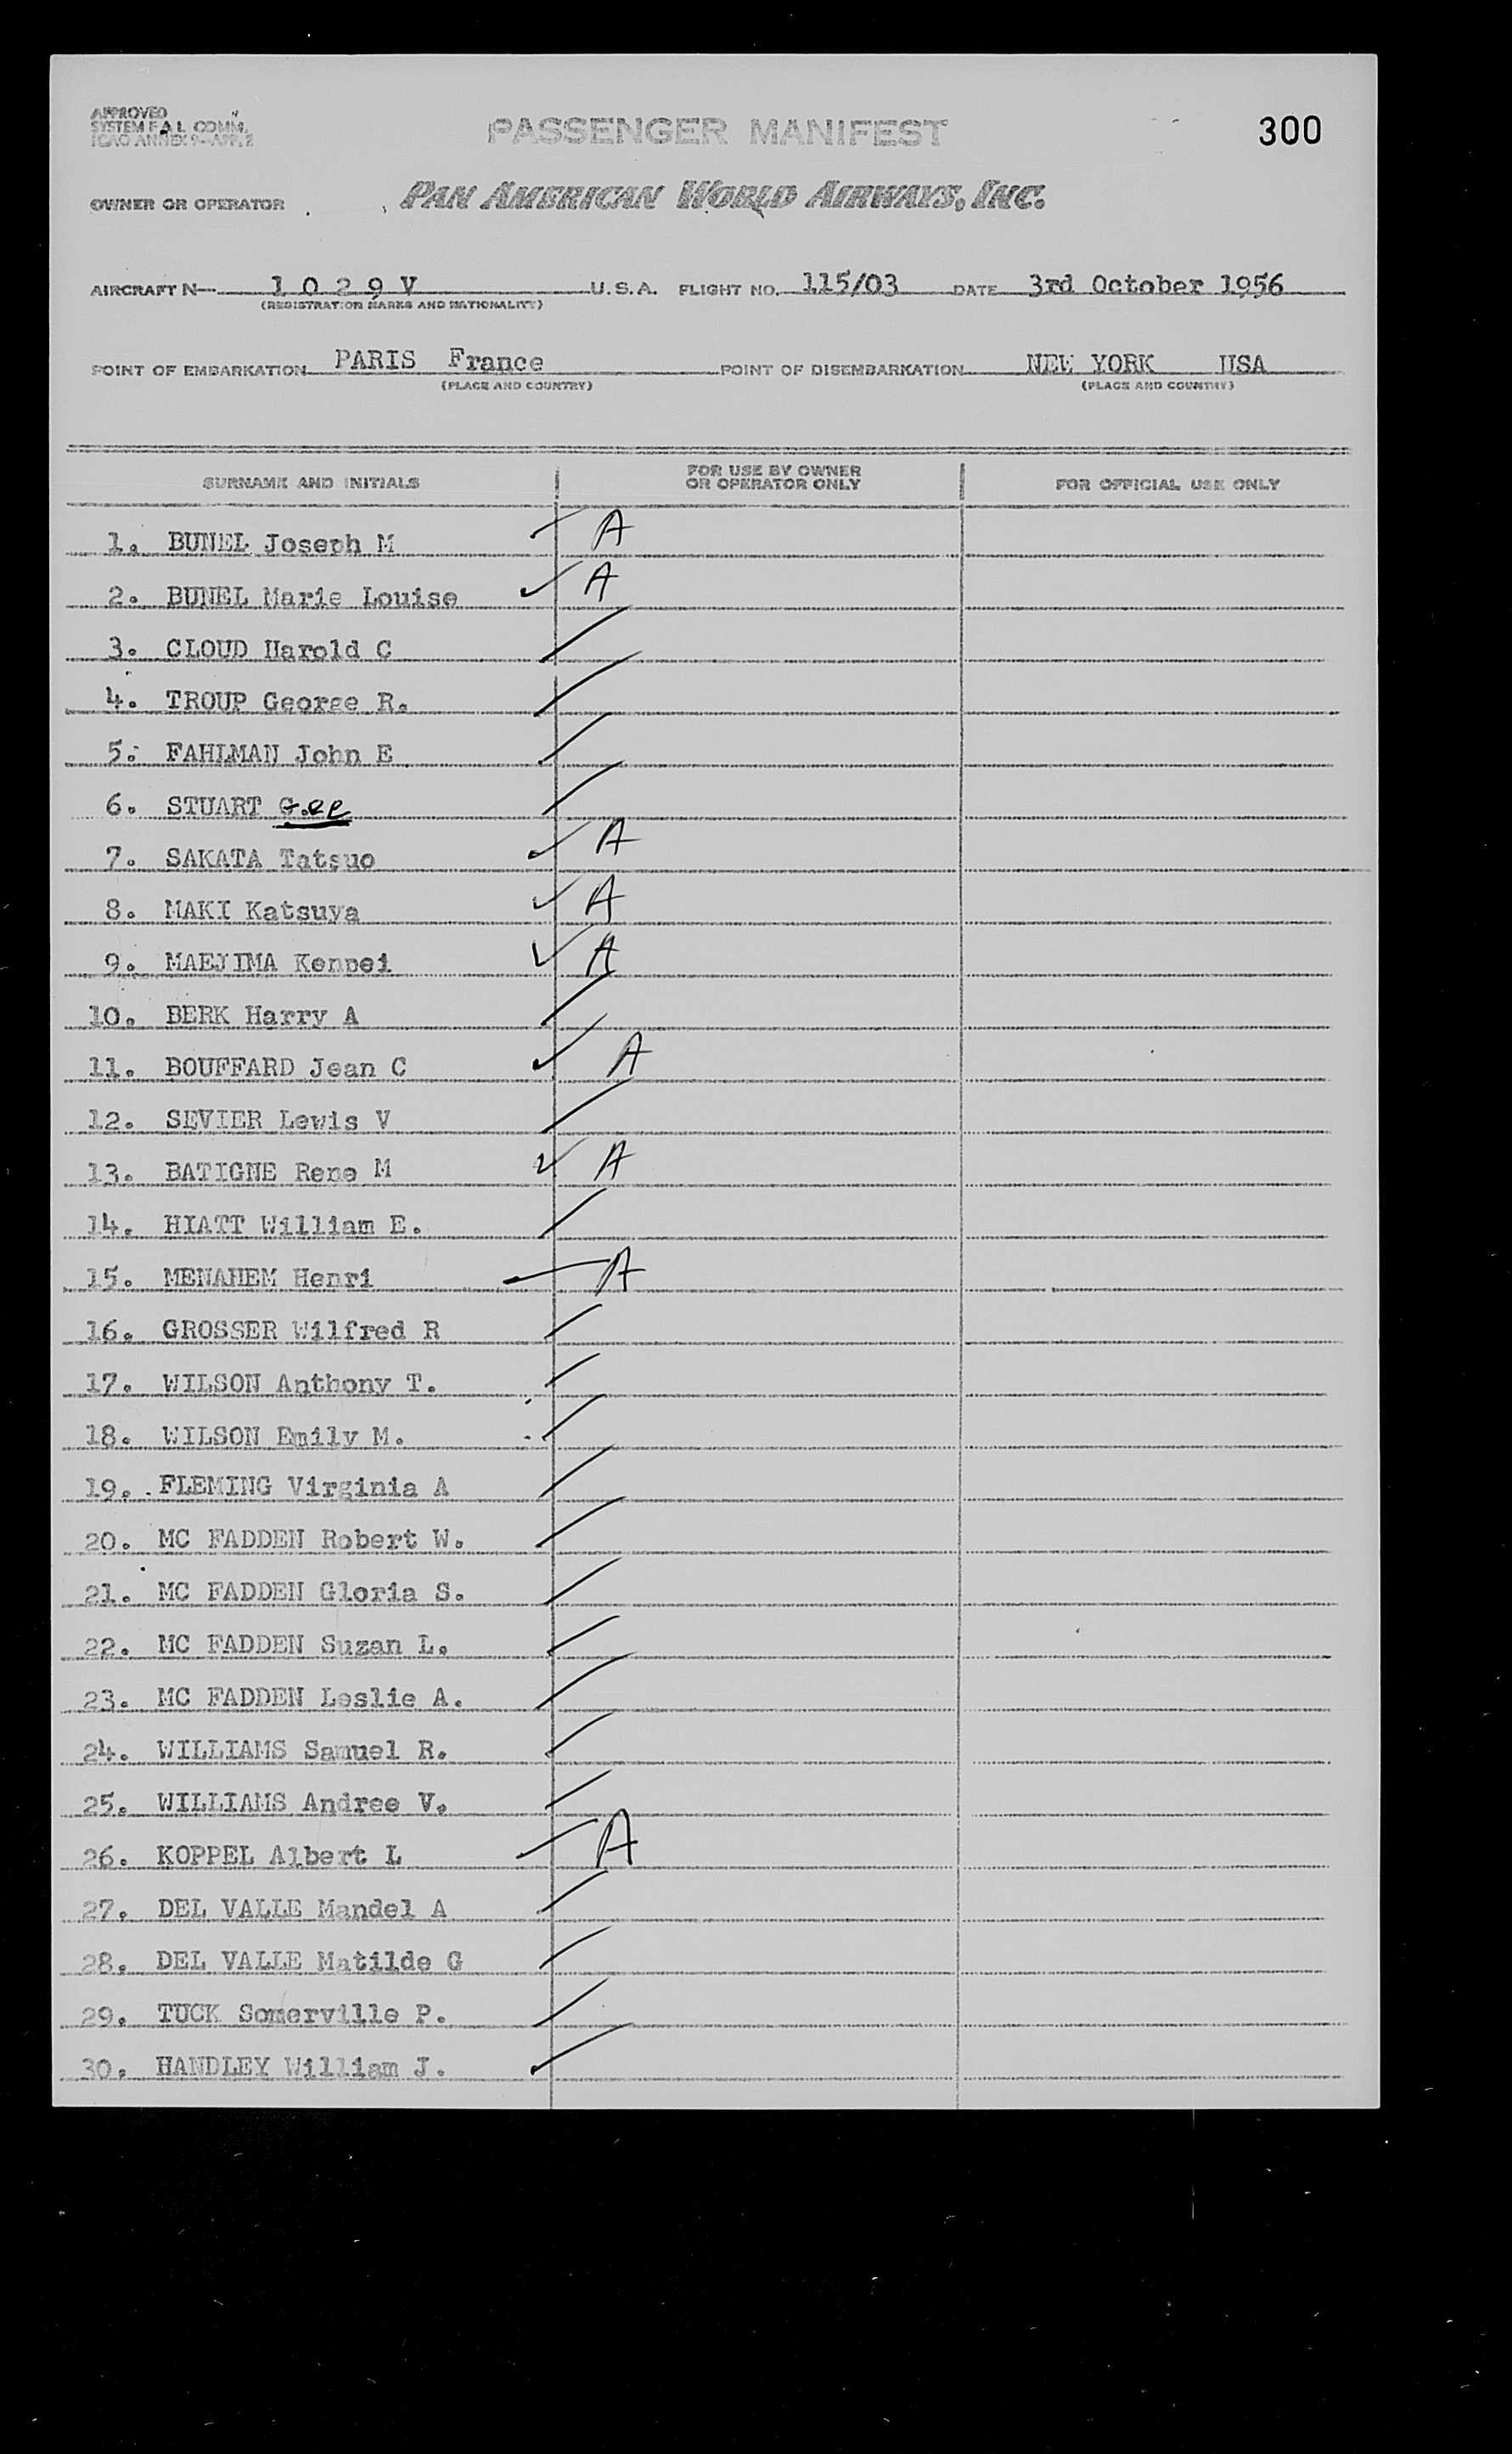 APPROVED
SYSTEM F A L COMM.
ICAO ANNEX 9-APP. 2
PASSENGER MANIFEST
300
OWNER OR OPERATOR
PAN AMERICAN WORLD AIRWAYS, INC.
AIRCRAFT N— 1 0 2 9 V U.S.A. FLIGHT NO. 115/03 DATE 3rd October 1956
(REGISTRATION MARKS AND NATIONALITY)
POINT OF EMBARKATION PARIS France POINT OF DISEMBARKATION NEW YORK USA
(PLACE AND COUNTRY) (PLACE AND COUNTRY)
SURNAME AND INITIALS
FOR USE BY OWNER
OR OPERATOR ONLY
FOR OFFICIAL USE ONLY
1. BUNEL Joseph M A
2. BUNEL Marie Louise A
3. CLOUD Harold C
4. TROUP George R.
5. FAHLMAN John E
6. STUART
7. SAKATA Tatsuo A
8. MAKI Katsuya A
9. MAEJIMA Kenpei A
10. BERK Harry A
11. BOUFFARD Jean C A
12. SEVIER Lewis V
13. BATIGNE Rene M A
14. HIATT William E.
15. MENAHEM Henri A
16. GROSSER Wilfred R
17. WILSON Anthony T.
18. WILSON Emily M.
19. FLEMING Virginia A
20. MC FADDEN Robert W.
21. MC FADDEN Gloria S.
22. MC FADDEN Suzan L.
23. MC FADDEN Leslie A.
24. WILLIAMS Samuel R.
25. WILLIAMS Andree V.
26. KOPPEL Albert L A
27. DEL VALLE Mandel A
28. DEL VALLE Matilde G
29. TUCK Somerville P.
30. HANDLEY William J.